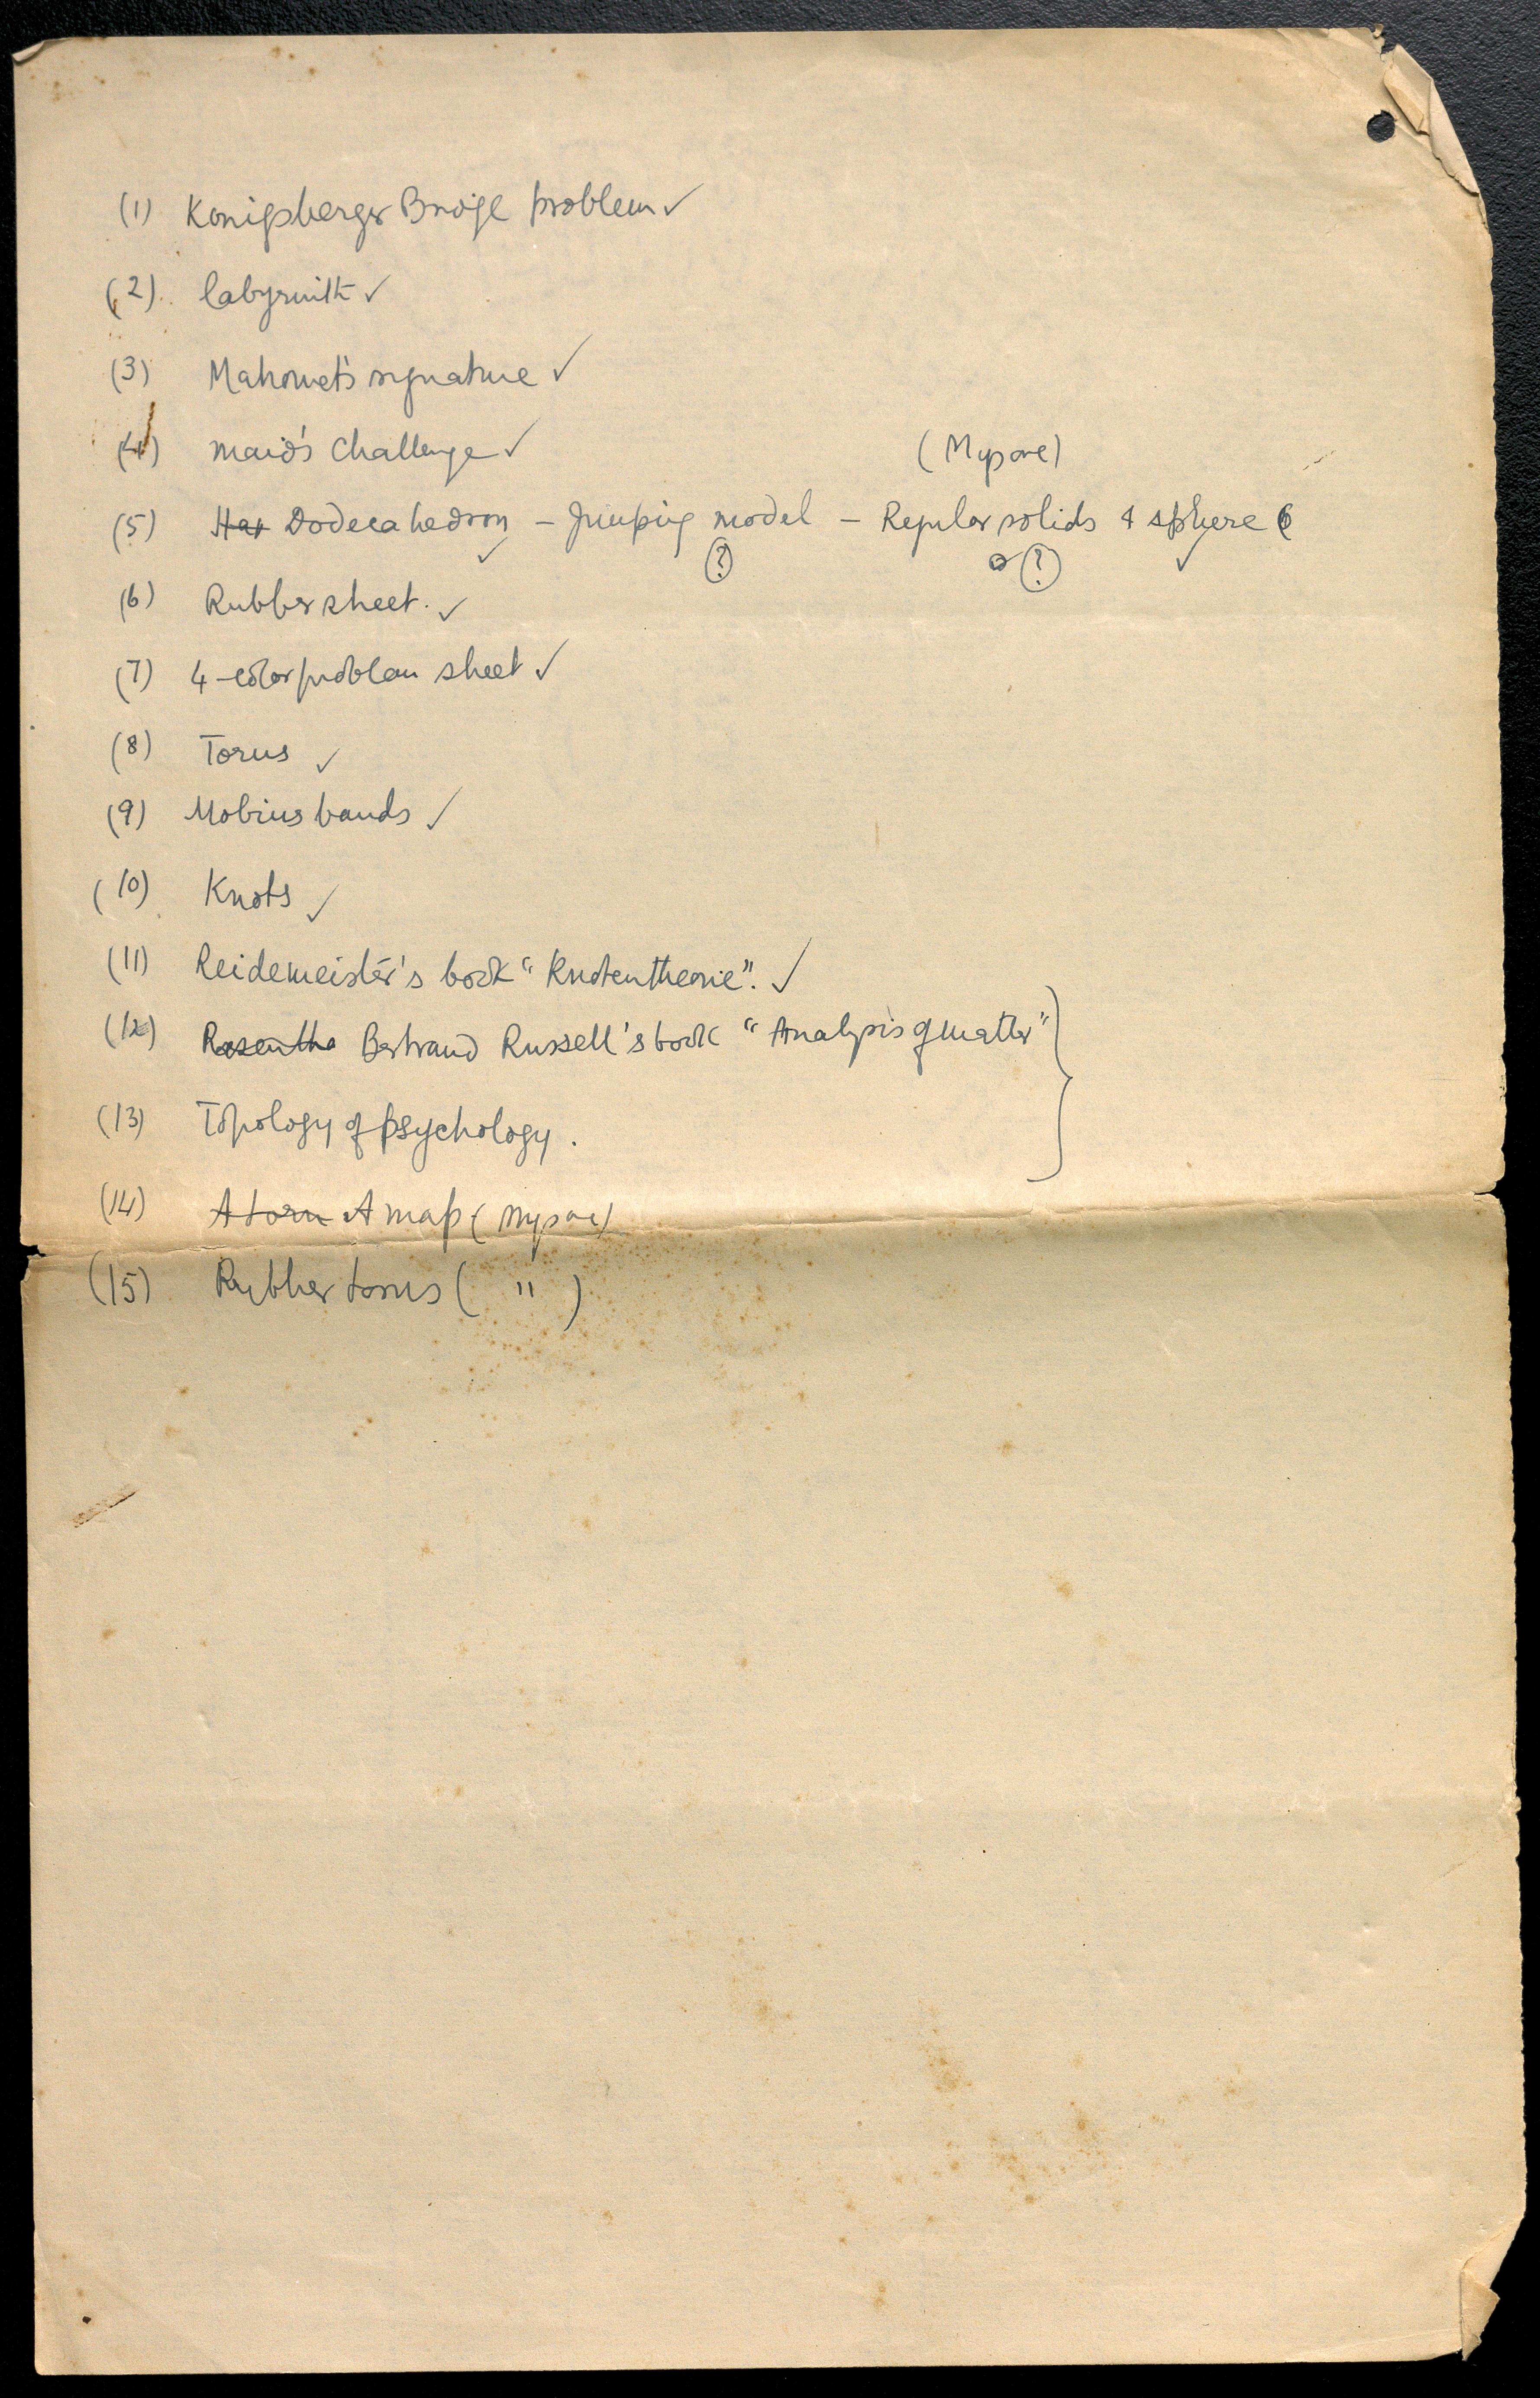 (1) Konigsberger Bridge problem ✓
(2) labyrinth ✓
(3) Mahomet's signature ✓
(4) Maid's Challenge ✓
(Mysore)
(5) Dodecahedron – Jumping model – Regular solids & sphere
✓ ? ? ✓
(6) Rubber sheet. ✓
(7) 4-color problem sheet ✓
(8) Torus ✓
(9) Mobius bands ✓
(10) Knots ✓
(11) Reidemeister's book "Knotentheorie". ✓
(12) Bertrand Russell's book "Analysis of matter"
(13) Topology of psychology.
(14) A map (Mysore)
(15) Rubber torus ( " )